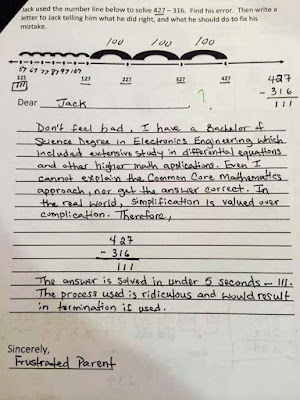 Jack used the number line below to solve 427 – 316. Find his error. Then write a
letter to Jack telling him what he did right, and what he should do to fix his
mistake.
100 100 100
57 67 77 87 97 107
121 127 227 327 427
111
427
- 316
111
?
Dear Jack
Don't feel bad. I have a Bachelor of
Science Degree in Electronics Engineering which
included extensive study in differential equations
and other higher math applications. Even I
cannot explain the Common Core Mathematics
approach, nor get the answer correct. In
the real world, simplification is valued over
complication. Therefore,
427
- 316
111
The answer is solved in under 5 seconds – 111.
The process used is ridiculous and would result
in termination if used.
Sincerely,
Frustrated Parent